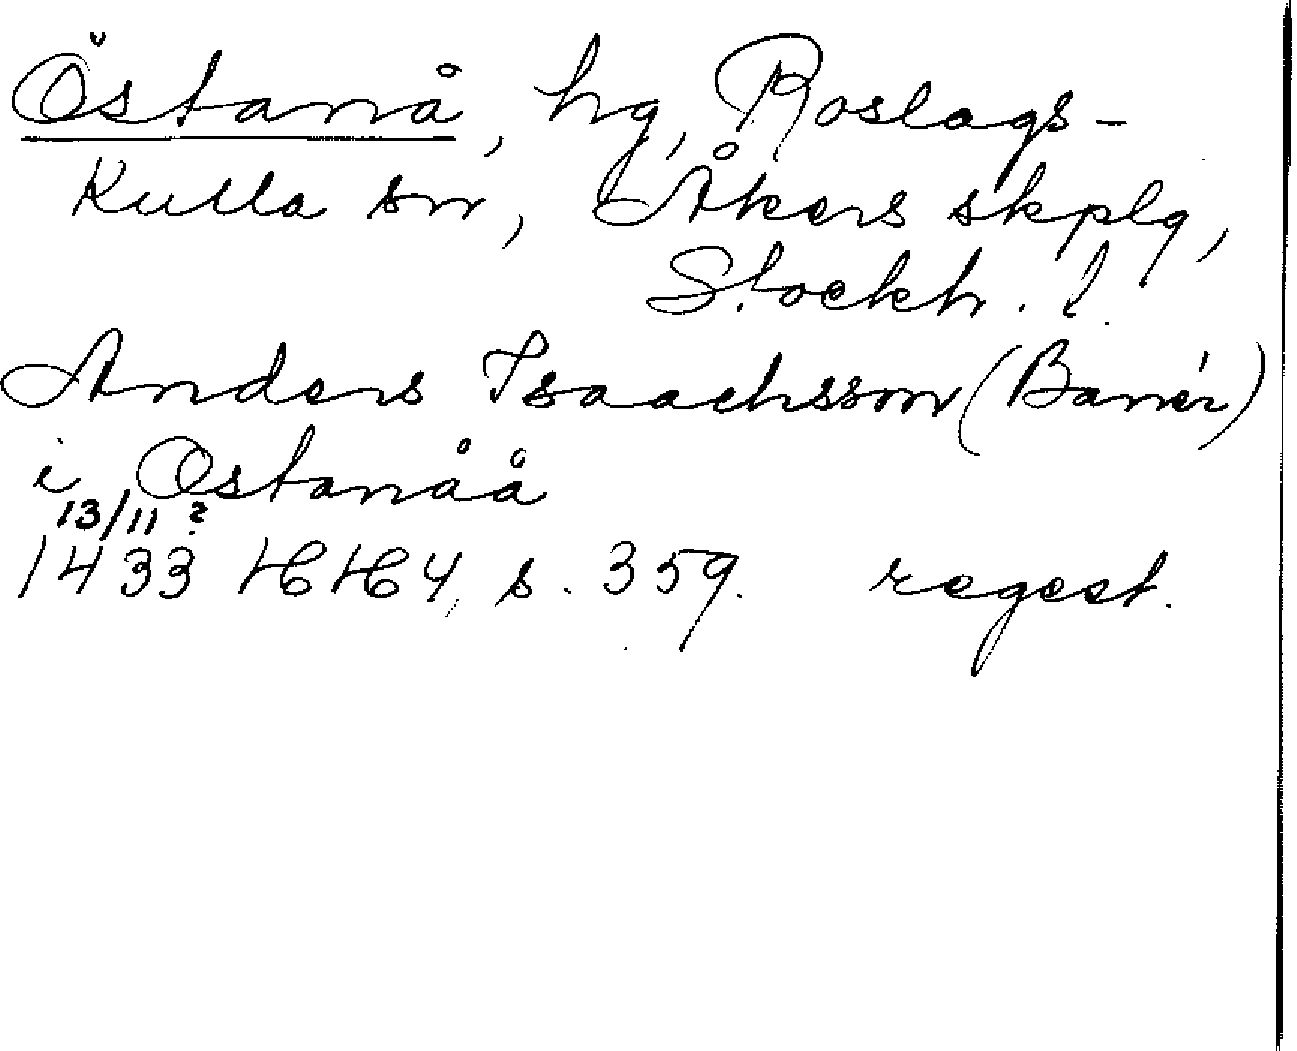 Östanå, hg, Roslags-
Kulla sn, Åkers skplg,
Stockh. l.
Anders Isaachsson (Banér)
i Östanåå
13/11 ?
1433 HH 4, s. 359. regest.